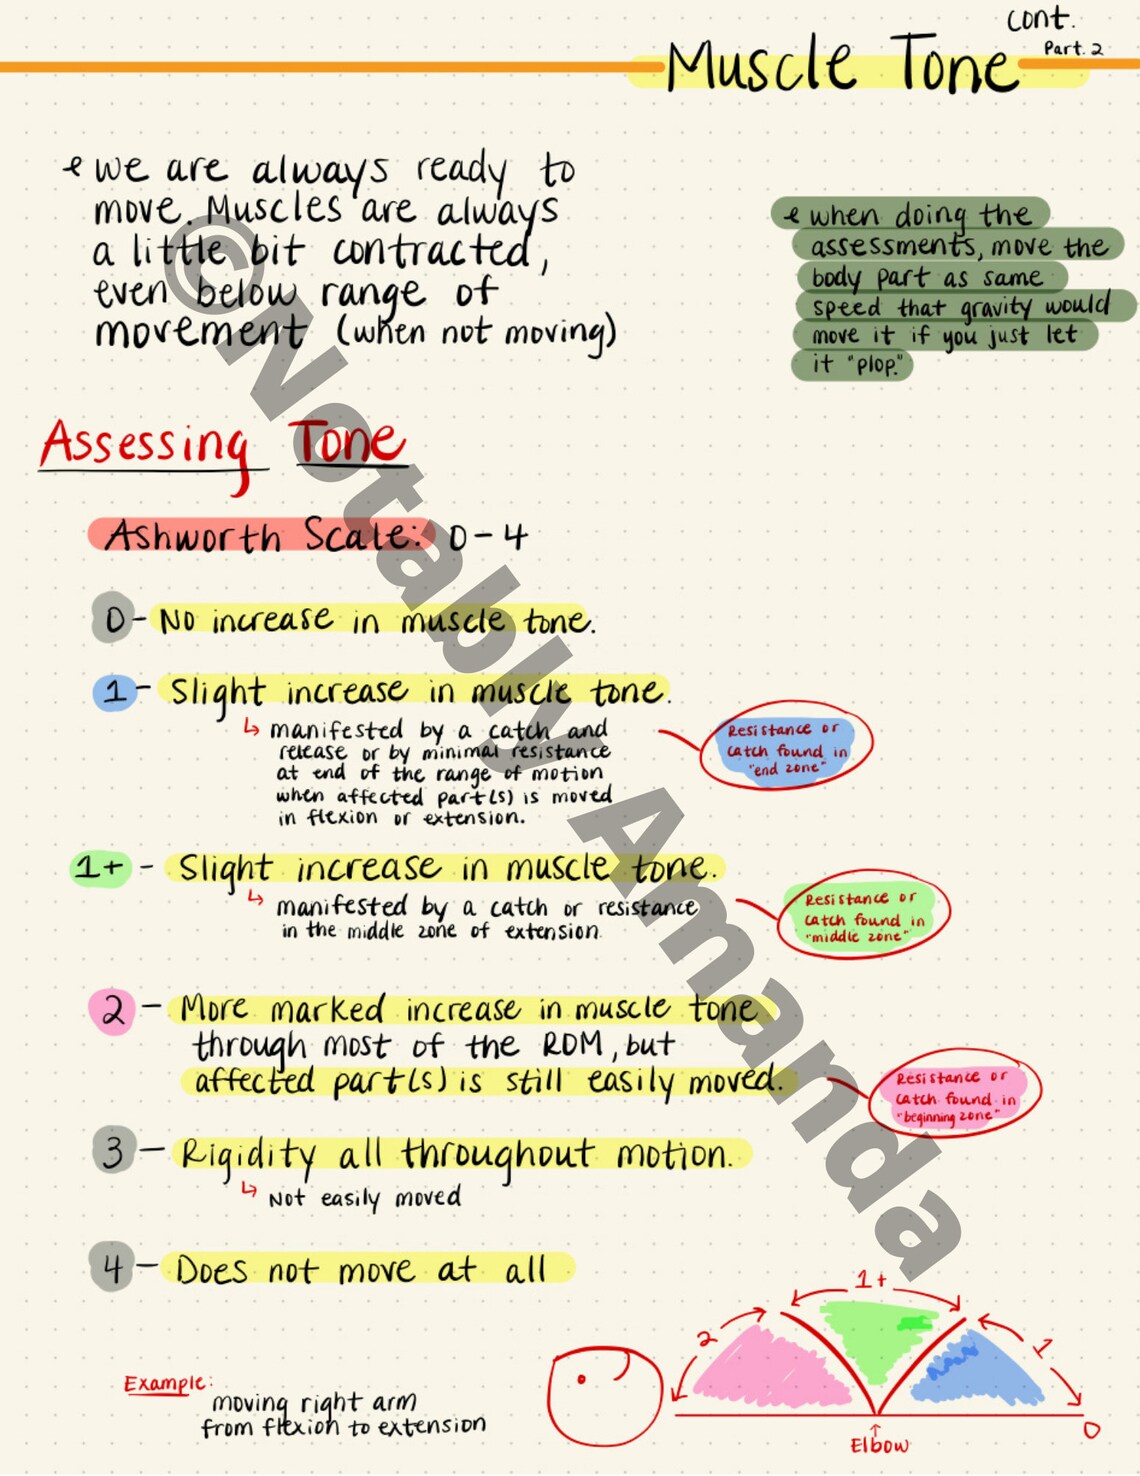 cont.
Part. 2
Muscle Tone
we are always ready to
move. Muscles are always
a little bit contracted,
even below range of
movement (when not moving)
when doing the
assessments, move the
body part as same
speed that gravity would
move it if you just let
it "plop."
Assessing Tone
Ashworth Scale: 0-4
0 - No increase in muscle tone.
1 - Slight increase in muscle tone.
↳ manifested by a catch and
release or by minimal resistance
at end of the range of motion
when affected part(s) is moved
in flexion or extension.
Resistance or
catch found in
"end zone"
1+ - Slight increase in muscle tone.
↳ manifested by a catch or resistance
in the middle zone of extension.
Resistance or
catch found in
"middle zone"
2 - More marked increase in muscle tone
through most of the ROM, but
affected part(s) is still easily moved.
Resistance or
catch found in
"beginning zone"
3 - Rigidity all throughout motion.
↳ Not easily moved
4 - Does not move at all
Example:
moving right arm
from flexion to extension
2
1+
1
0
↑
Elbow
©Notably Amanda